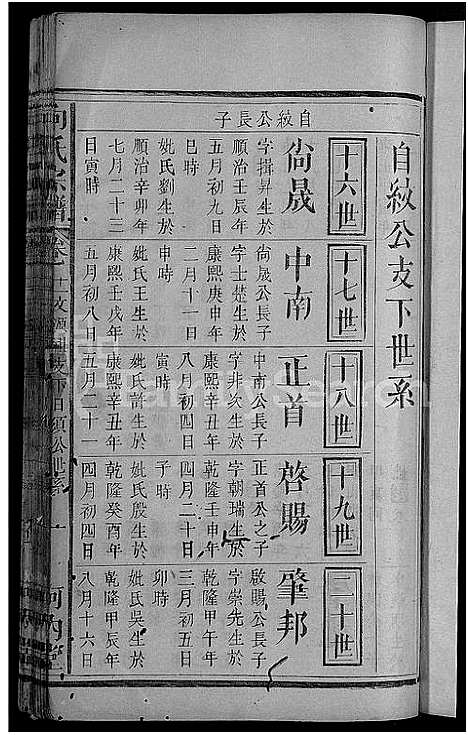 自紋公支下世系
十六世
十七世
十八世
十九世
二十世
自紋公長子
尙晟
字揖昇生於
順治壬辰年
五月初九日
巳時
妣氏劉生於
順治辛卯年
七月二十三
日寅時
中南
尙晟公長子
字士楚生於
康熙庚申年
二月十一日
申時
妣氏王生於
康熙壬戌年
五月初八日
正首
中南公長子
字非次生於
康熙辛丑年
八月初四日
寅時
妣氏許生於
康熙辛丑年
五月二十一
啓賜
正首公之子
字朝瑞生於
乾隆壬申年
四月二十日
子時
妣氏殷生於
乾隆癸酉年
四月初四日
肇邦
啟賜公長子
字崇先生於
乾隆甲午年
三月初五日
卯時
妣氏吳生於
乾隆甲辰年
八月十六日
向氏宗譜
河內堂